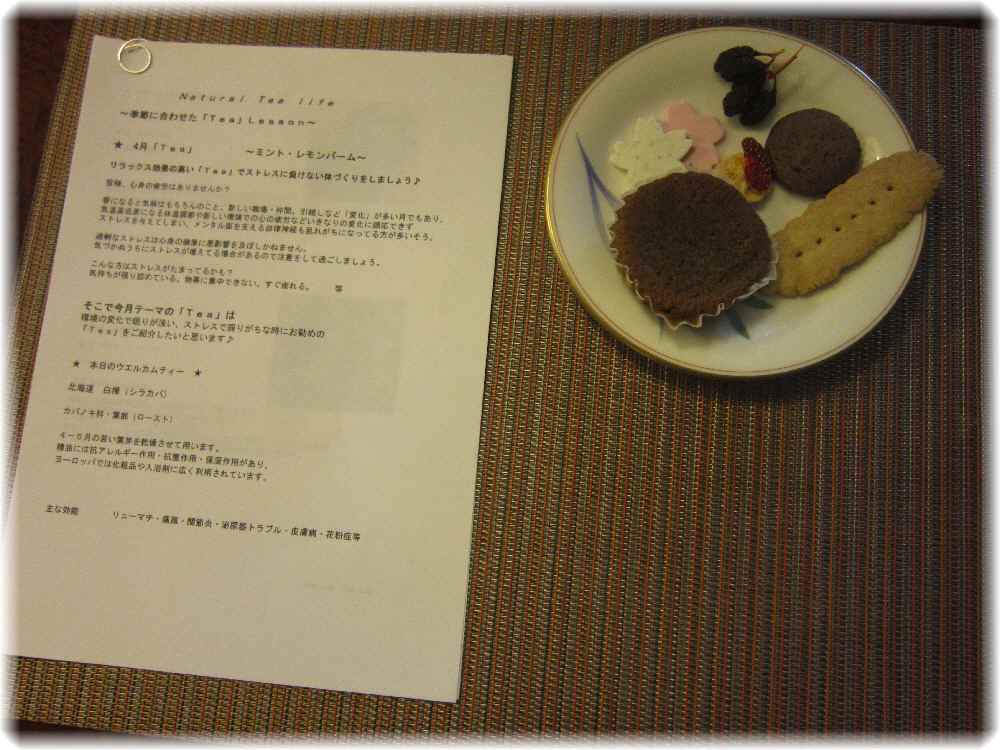 Natural Tea life
～季節に合わせた「Tea」Lesson～
★ 4月「Tea」 ～ミント・レモンバーム～
リラックス効果の高い「Tea」でストレスに負けない体づくりをしましょう♪
皆様、心身の疲労はありませんか？
春になると気候はもちろんのこと、新しい職場・仲間、引越しなど「変化」が多い月でもあり、
気温差治差による体温調節や新しい環境での心の疲労などいきなりの変化に順応できず
ストレスを与えてしまい、メンタル面を支える自律神経も乱れがちになってる方が多いそう。
過剰なストレスは心身の健康に悪影響を及ぼしかねません。
気づかぬうちにストレスが増えてる場合があるので注意をして過ごしましょう。
こんな方はストレスがたまってるかも？
気持ちが張り詰めている。物事に集中できない。すぐ疲れる。 等
そこで今月テーマの「Tea」は
環境の変化で眠りが浅い、ストレスで弱りがちな時にお勧めの
「Tea」をご紹介したいと思います♪
★ 本日のウエルカムティー ★
北海道 白樺（シラカバ）
カバノキ科・葉部（ロースト）
4－6月の若い葉芽を乾燥させて用います。
精油には抗アレルギー作用・抗菌作用・保湿作用があり、
ヨーロッパでは化粧品や入浴剤に広く利用されています。
主な効能 リューマチ・痛風・関節炎・泌尿器トラブル・皮膚病・花粉症等